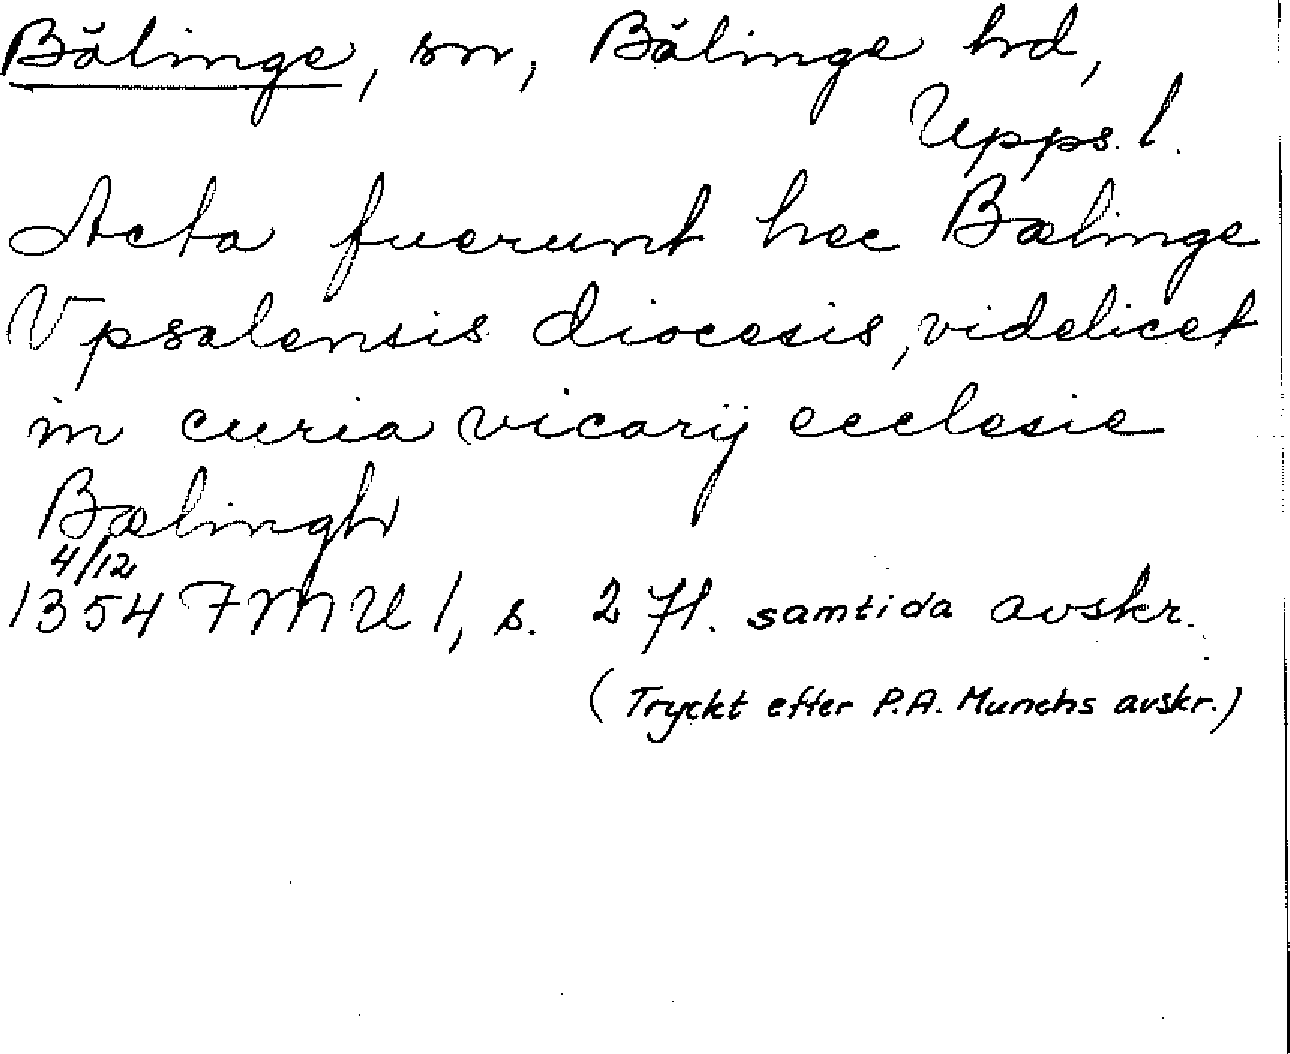 Bälinge, sn, Bälinge hd,
Upps. l.
Acta fuerunt hec Bælinge
Vpsalensis diocesis, videlicet
in curia vicarij ecclesie
Bælingh
4/12
1354 FMU 1, s. 271. samtida avskr.
(Tryckt efter P.A. Munchs avskr.)